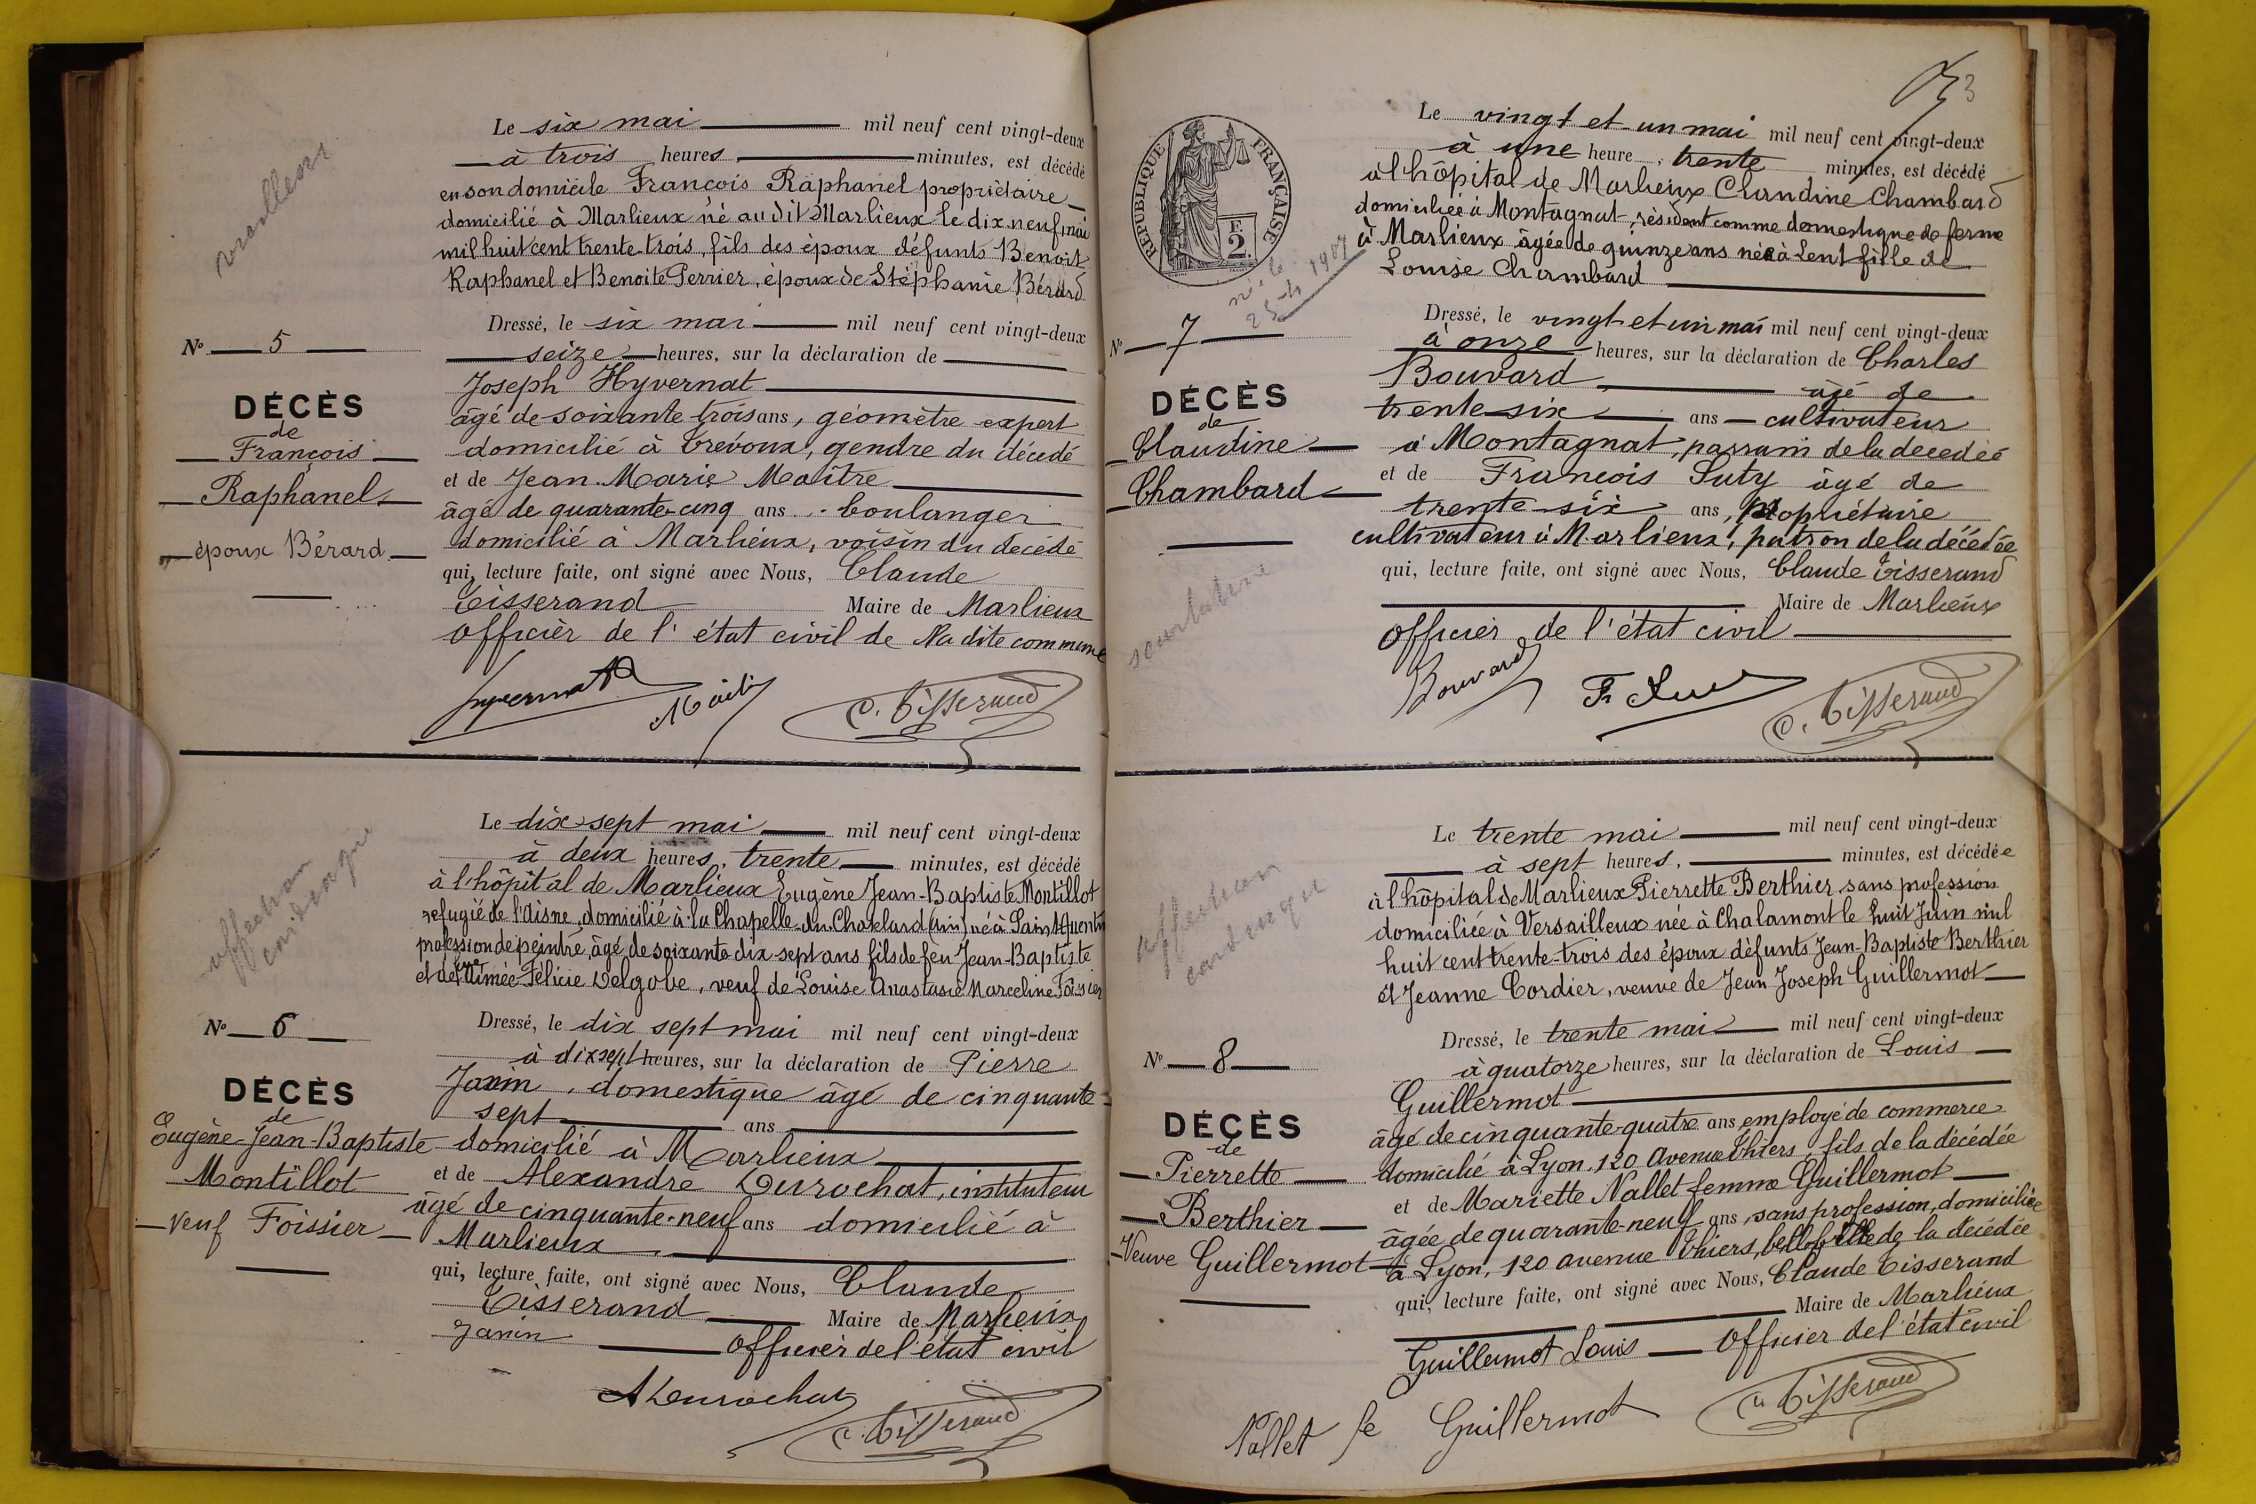 Le six mai mil neuf cent vingt-deux
à trois heures minutes, est décédé
en son domicile François Raphanel propriétaire
domicilié à Marlieux né au dit Marlieux le dix neuf mai
mil huit cent trente-trois, fils des époux défunts Benoit
Raphanel et Benoite Perrier, époux de Stéphanie Bérard
Dressé, le six mai mil neuf cent vingt-deux
seize heures, sur la déclaration de
Joseph Hyvernat
âgé de soixante trois ans, géomètre expert
domicilié à Trévoux, gendre du décédé
et de Jean Marie Maître
âgé de quarante-cinq ans boulanger
domicilié à Marlieux, voisin du décédé
qui, lecture faite, ont signé avec Nous, Claude
Tisserand Maire de Marlieux
officier de l'état civil de la dite commune
C. Tisserand
No 5
DÉCÈS
de
François
Raphanel
époux Bérard
Le dix sept mai mil neuf cent vingt-deux
à deux heures, trente minutes, est décédé
à l'hôpital de Marlieux Eugène Jean-Baptiste Montillot
refugié de l'Aisne, domicilié à la Chapelle-du-Chatelard (Ain) né à Saint Quentin
profession de peintre, âgé de soixante dix-sept ans fils de feu Jean-Baptiste
et de feue Aimée Félicie Delgove, veuf de Louise Anastasie Marceline Foissier
Dressé, le dix sept mai mil neuf cent vingt-deux
à dix sept heures, sur la déclaration de Pierre
Janin, domestique âgé de cinquante
sept ans
domicilié à Marlieux
et de Alexandre Durochat, instituteur
âgé de cinquante-neuf ans domicilié à
Marlieux
qui, lecture faite, ont signé avec Nous, Claude
Tisserand Maire de Marlieux
Janin officier de l'état civil
A Durochat
C. Tisserand
affection
cardiaque
No 6
DÉCÈS
de
Eugène-Jean-Baptiste
Montillot
Veuf Foissier
3
RÉPUBLIQUE FRANÇAISE
F.
2.
Le vingt et un mai mil neuf cent vingt-deux
à une heure, trente minutes, est décédé
à l'hôpital de Marlieux Claudine Chambard
domiciliée à Montagnat, résident comme domestique de ferme
à Marlieux âgée de quinze ans née à Lent fille de
Louise Chambard
Dressé, le vingt et un mai mil neuf cent vingt-deux
à onze heures, sur la déclaration de Charles
Bouvard âgé de
trente-six ans cultivateur
à Montagnat, parrain de la décédée
et de François Suty âgé de
trente-six ans, propriétaire
cultivateur à Marlieux, patron de la décédée
qui, lecture faite, ont signé avec Nous, Claude Tisserand
Maire de Marlieux
officier de l'état civil
Bouvard
C. Tisserand
1907
No 7
DÉCÈS
de
Claudine
Chambard
Le trente mai mil neuf cent vingt-deux
à sept heures, minutes, est décédée
à l'hôpital de Marlieux Pierrette Berthier sans profession
domiciliée à Versailleux née à Chalamont le huit Juin mil
huit cent trente-trois des époux défunts Jean-Baptiste Berthier
et Jeanne Cordier, veuve de Jean Joseph Guillermot
Dressé, le trente mai mil neuf cent vingt-deux
à quatorze heures, sur la déclaration de Louis
Guillermot
âgé de cinquante-quatre ans employé de commerce
domicilié à Lyon, 120 avenue Thiers, fils de la décédée
et de Mariette Nallet femme Guillermot
âgée de quarante-neuf ans sans profession, domiciliée
à Lyon, 120 avenue Thiers, belle fille de la décédée
qui, lecture faite, ont signé avec Nous, Claude Tisserand
Maire de Marlieux
Guillermot Louis officier de l'état civil
Nallet fe Guillermot
C. Tisserand
affection
cardiaque
No 8
DÉCÈS
de
Pierrette
Berthier
Veuve Guillermot